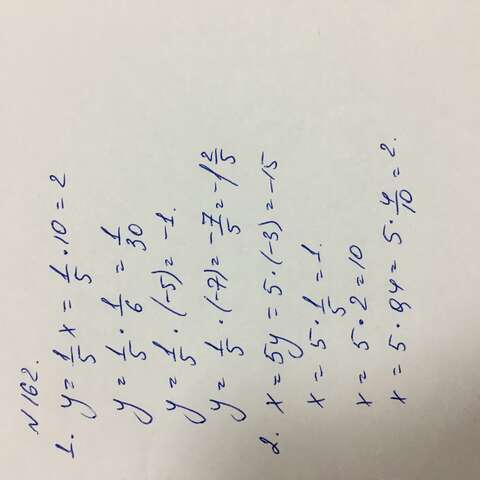 N 162.
1. y = 1/5 x = 1/5 · 10 = 2
y = 1/5 · 1/6 = 1/30
y = 1/5 · (-5) = -1.
y = 1/5 · (-7) = -7/5 = -1 2/5
2. x = 5y = 5 · (-3) = -15
x = 5 · 1/5 = 1.
x = 5 · 2 = 10
x = 5 · 0,4 = 5 · 4/10 = 2.